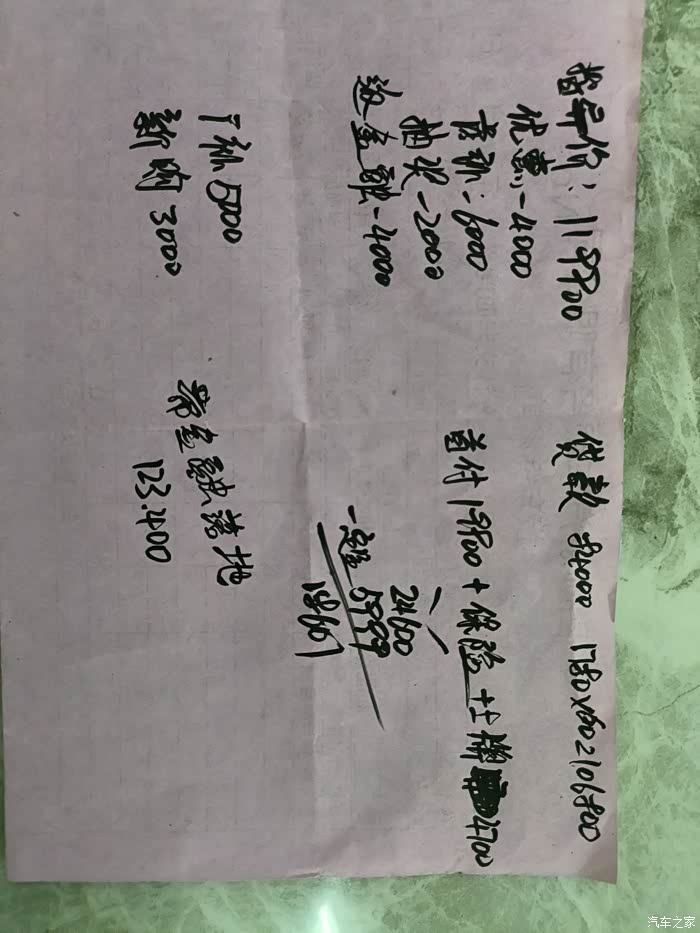 指导价: 119800
优惠 -4000
-6000
抽奖 -2000
返金融 -4000
厂补 5000
新购 3000
贷款 84000 1780x60=106800
首付 19800 + 保险 + 上牌 4700
24600
- 定金 5999
18601
带金融落地
123.400
汽车之家